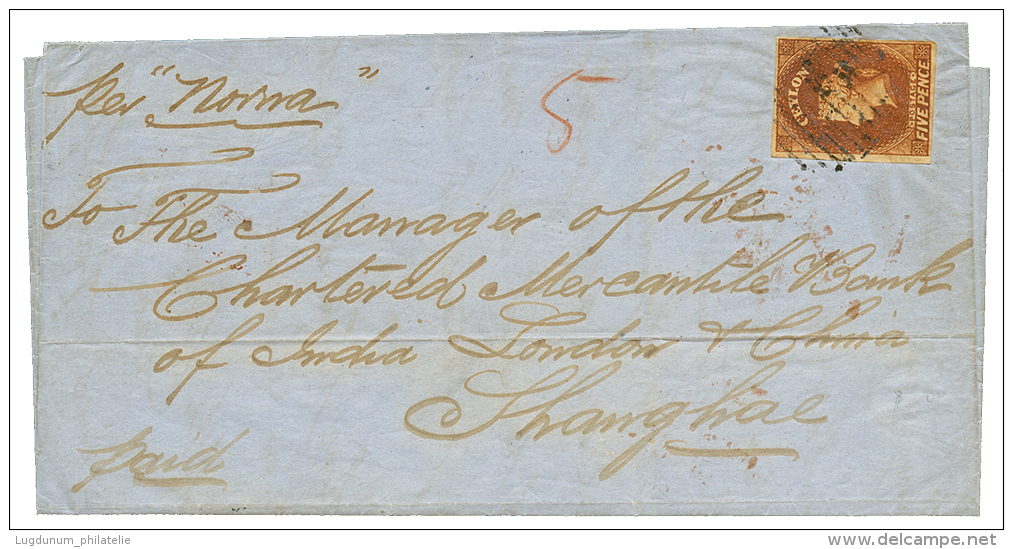 per "Norna"
5
CEYLON
POSTAGE
FIVE PENCE
To The Manager of the
Chartered Mercantile Bank
of India London & China
Shanghae
paid
Lugdunum_philatelie
delcampe.net